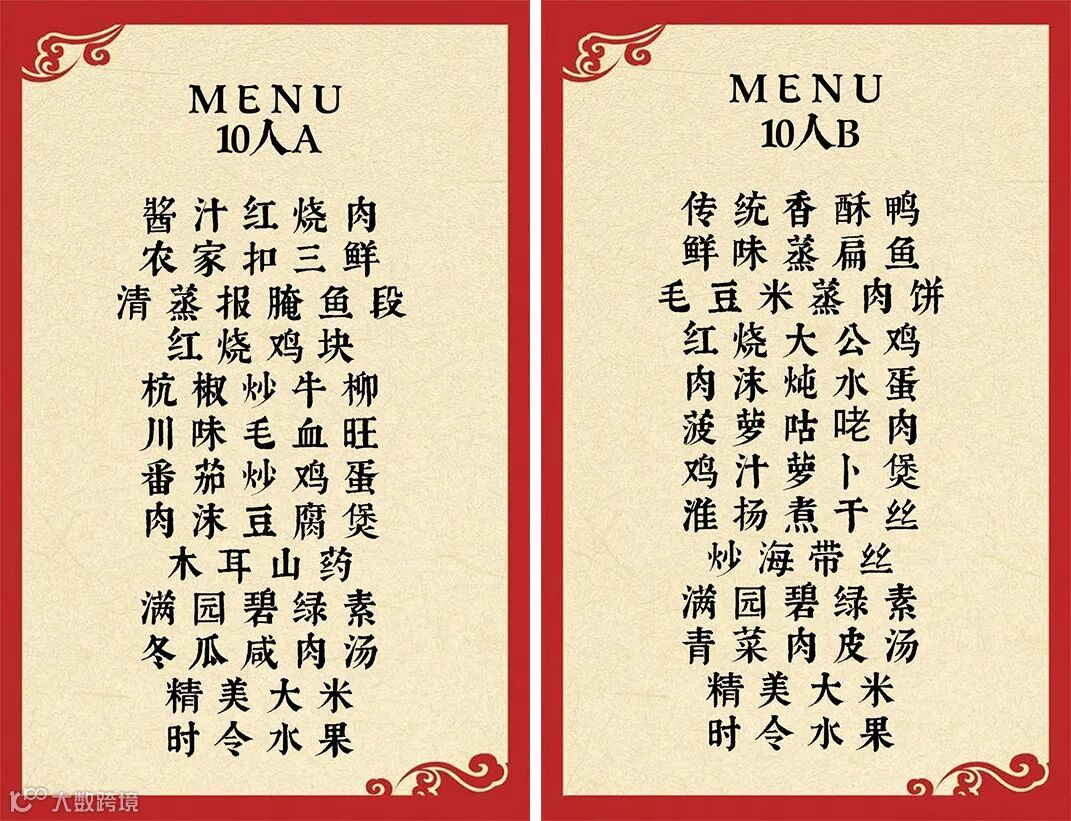 MENU
10人A
酱汁红烧肉
农家扣三鲜
清蒸报腌鱼段
红烧鸡块
杭椒炒牛柳
川味毛血旺
番茄炒鸡蛋
肉沫豆腐煲
木耳山药
满园碧绿素
冬瓜咸肉汤
精美大米
时令水果
MENU
10人B
传统香酥鸭
鲜味蒸扁鱼
毛豆米蒸肉饼
红烧大公鸡
肉沫炖水蛋
菠萝咕咾肉
鸡汁萝卜煲
淮扬煮干丝
炒海带丝
满园碧绿素
青菜肉皮汤
精美大米
时令水果
大数跨境